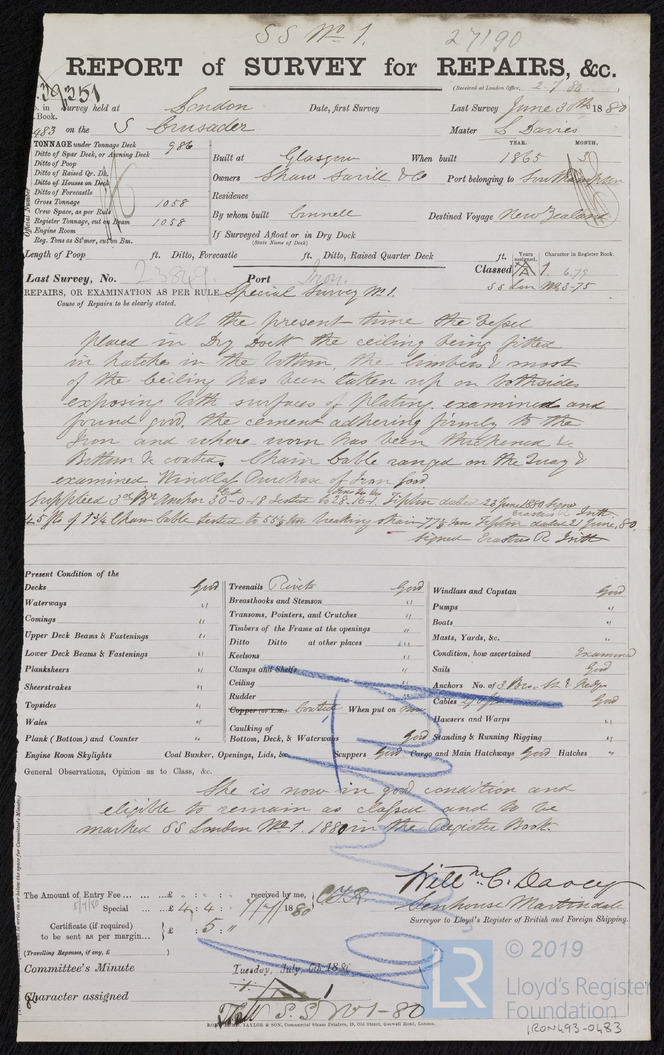 SS No 1.
27190
REPORT of SURVEY for REPAIRS, &c.
(Received at London Office, 2-7-80)
39251
No. in Survey held at London Date, first Survey Last Survey June 30th 1880
Book.
483 on the S Crusader Master S Davies
TONNAGE under Tonnage Deck 986
Ditto of Spar Deck, or Awning Deck
Ditto of Poop
Ditto of Raised Qr. Dk.
Ditto of Houses on Deck
Ditto of Forecastle
Gross Tonnage 1058
Crew Space, as per Rule
Register Tonnage, cut on Beam 1058
Engine Room
Reg. Tons as St'mer, cut on Bm.
Official Number
YEAR. MONTH.
Built at Glasgow When built 1865
Owners Shaw Savill & Co Port belonging to Southampton
Residence
By whom built Connell Destined Voyage New Zealand
If Surveyed Afloat or in Dry Dock
(State Name of Dock)
Length of Poop ft. Ditto, Forecastle ft. Ditto, Raised Quarter Deck ft.
Years assigned. Character in Register Book.
Last Survey, No. 23849 Port Iron. Classed A 1. 6,79
SS Lon No 3-75
REPAIRS, OR EXAMINATION AS PER RULE Special Survey No 1.
Cause of Repairs to be clearly stated.
At the present time the vessel
placed in Dry Dock the ceiling being fitted
in hatches in the bottom, the limbers & most
of the ceiling has been taken up on both sides
exposing both surfaces of plating examined and
found good. the cement adhering firmly to the
Iron and where worn has been thickened &c
Bottom &c coated. Chain Cable ranged on the Quay &
examined Windlass Purchase of Iron good
Supplied 3rd Br Anchor 30-0-18 tested to 28-16-1. Tipton dated 23 June 1880 signed
45 fs of 1 3/4 Chain Cable tested to 55 1/8 ton breaking strain 77 1/8 tons Tipton dated 21 June, 80
signed Erastus R. Smith
Present Condition of the
Decks Good
Waterways "
Comings "
Upper Deck Beams & Fastenings "
Lower Deck Beams & Fastenings "
Planksheers "
Sheerstrakes "
Topsides "
Wales "
Plank (Bottom) and Counter "
Engine Room Skylights Coal Bunker, Openings, Lids, &c. Scuppers Good Cargo and Main Hatchways Good Hatches "
Treenails Rivets Good
Breasthooks and Stemson "
Transoms, Pointers, and Crutches "
Timbers of the Frame at the openings "
Ditto Ditto at other places "
Keelsons "
Clamps and Shelfs
Ceiling
Rudder
Copper (or Y.M.) Coated When put on Now
Caulking of
Bottom, Deck, & Waterways Good
Windlass and Capstan Good
Pumps "
Boats "
Masts, Yards, &c. "
Condition, how ascertained Examined
Sails Good
Anchors No. of 3 Bow. St & Kedge
Cables Good
Hawsers and Warps "
Standing & Running Rigging "
General Observations, Opinion as to Class, &c.
She is now in good condition and
eligible to remain as classed and to be
marked SS London No 1. 1880 in the Register Book.
The Amount of Entry Fee £ : : received by me,
Special £ 4 : 4 : 7/7/1880
Certificate (if required)
to be sent as per margin £ : 5 : "
(Travelling Expenses, if any, £ )
Willm C. Davey
Senhouse Martindale
Surveyor to Lloyd's Register of British and Foreign Shipping.
Committee's Minute Tuesday, July, 6th 1880
Character assigned
S.S No 1-80
TAYLOR & SON, Commercial Steam Printers, 19, Old Street, Goswell Road, London.
© 2019
LR
Lloyd's Register
Foundation
IRON493-0483